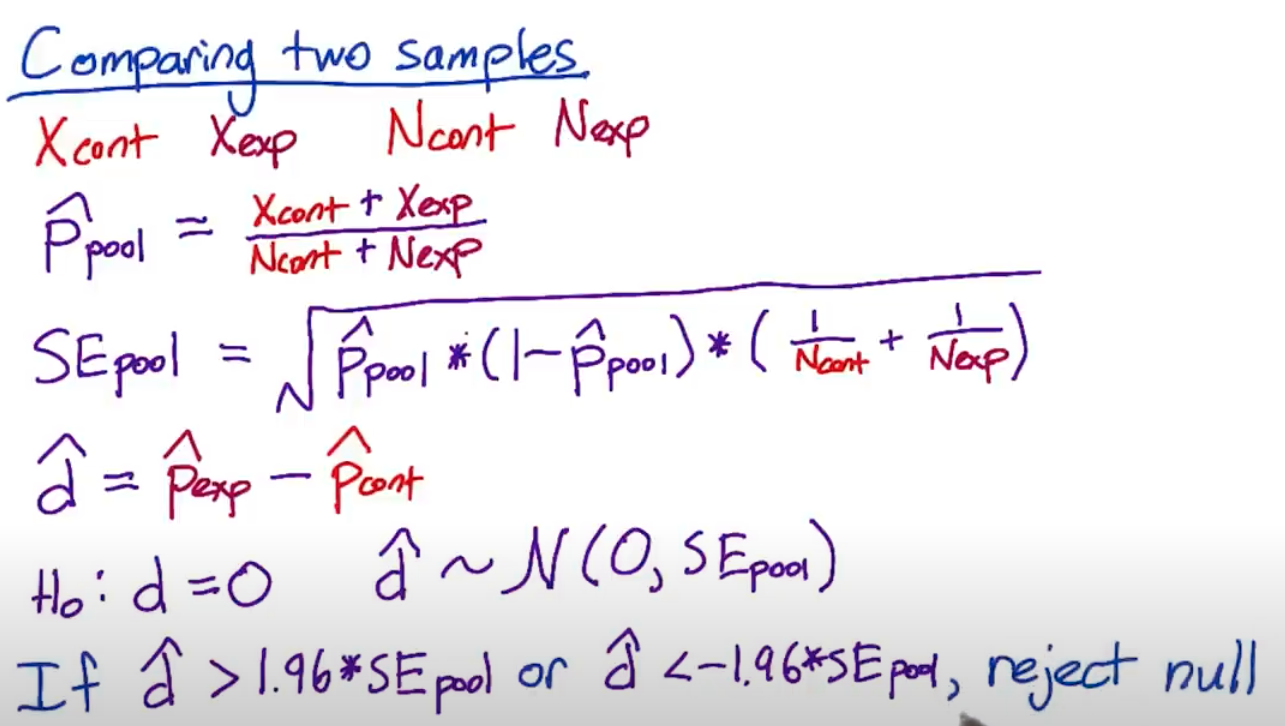 Comparing two samples
Xcont Xexp Ncont Nexp
p̂pool = Xcont + Xexp / Ncont + Nexp
SEpool = √ p̂pool * (1 - p̂pool) * ( 1/Ncont + 1/Nexp )
d̂ = p̂exp - p̂cont
H₀: d = 0 d̂ ~ N(0, SEpool)
If d̂ > 1.96*SEpool or d̂ < -1.96*SEpool, reject null